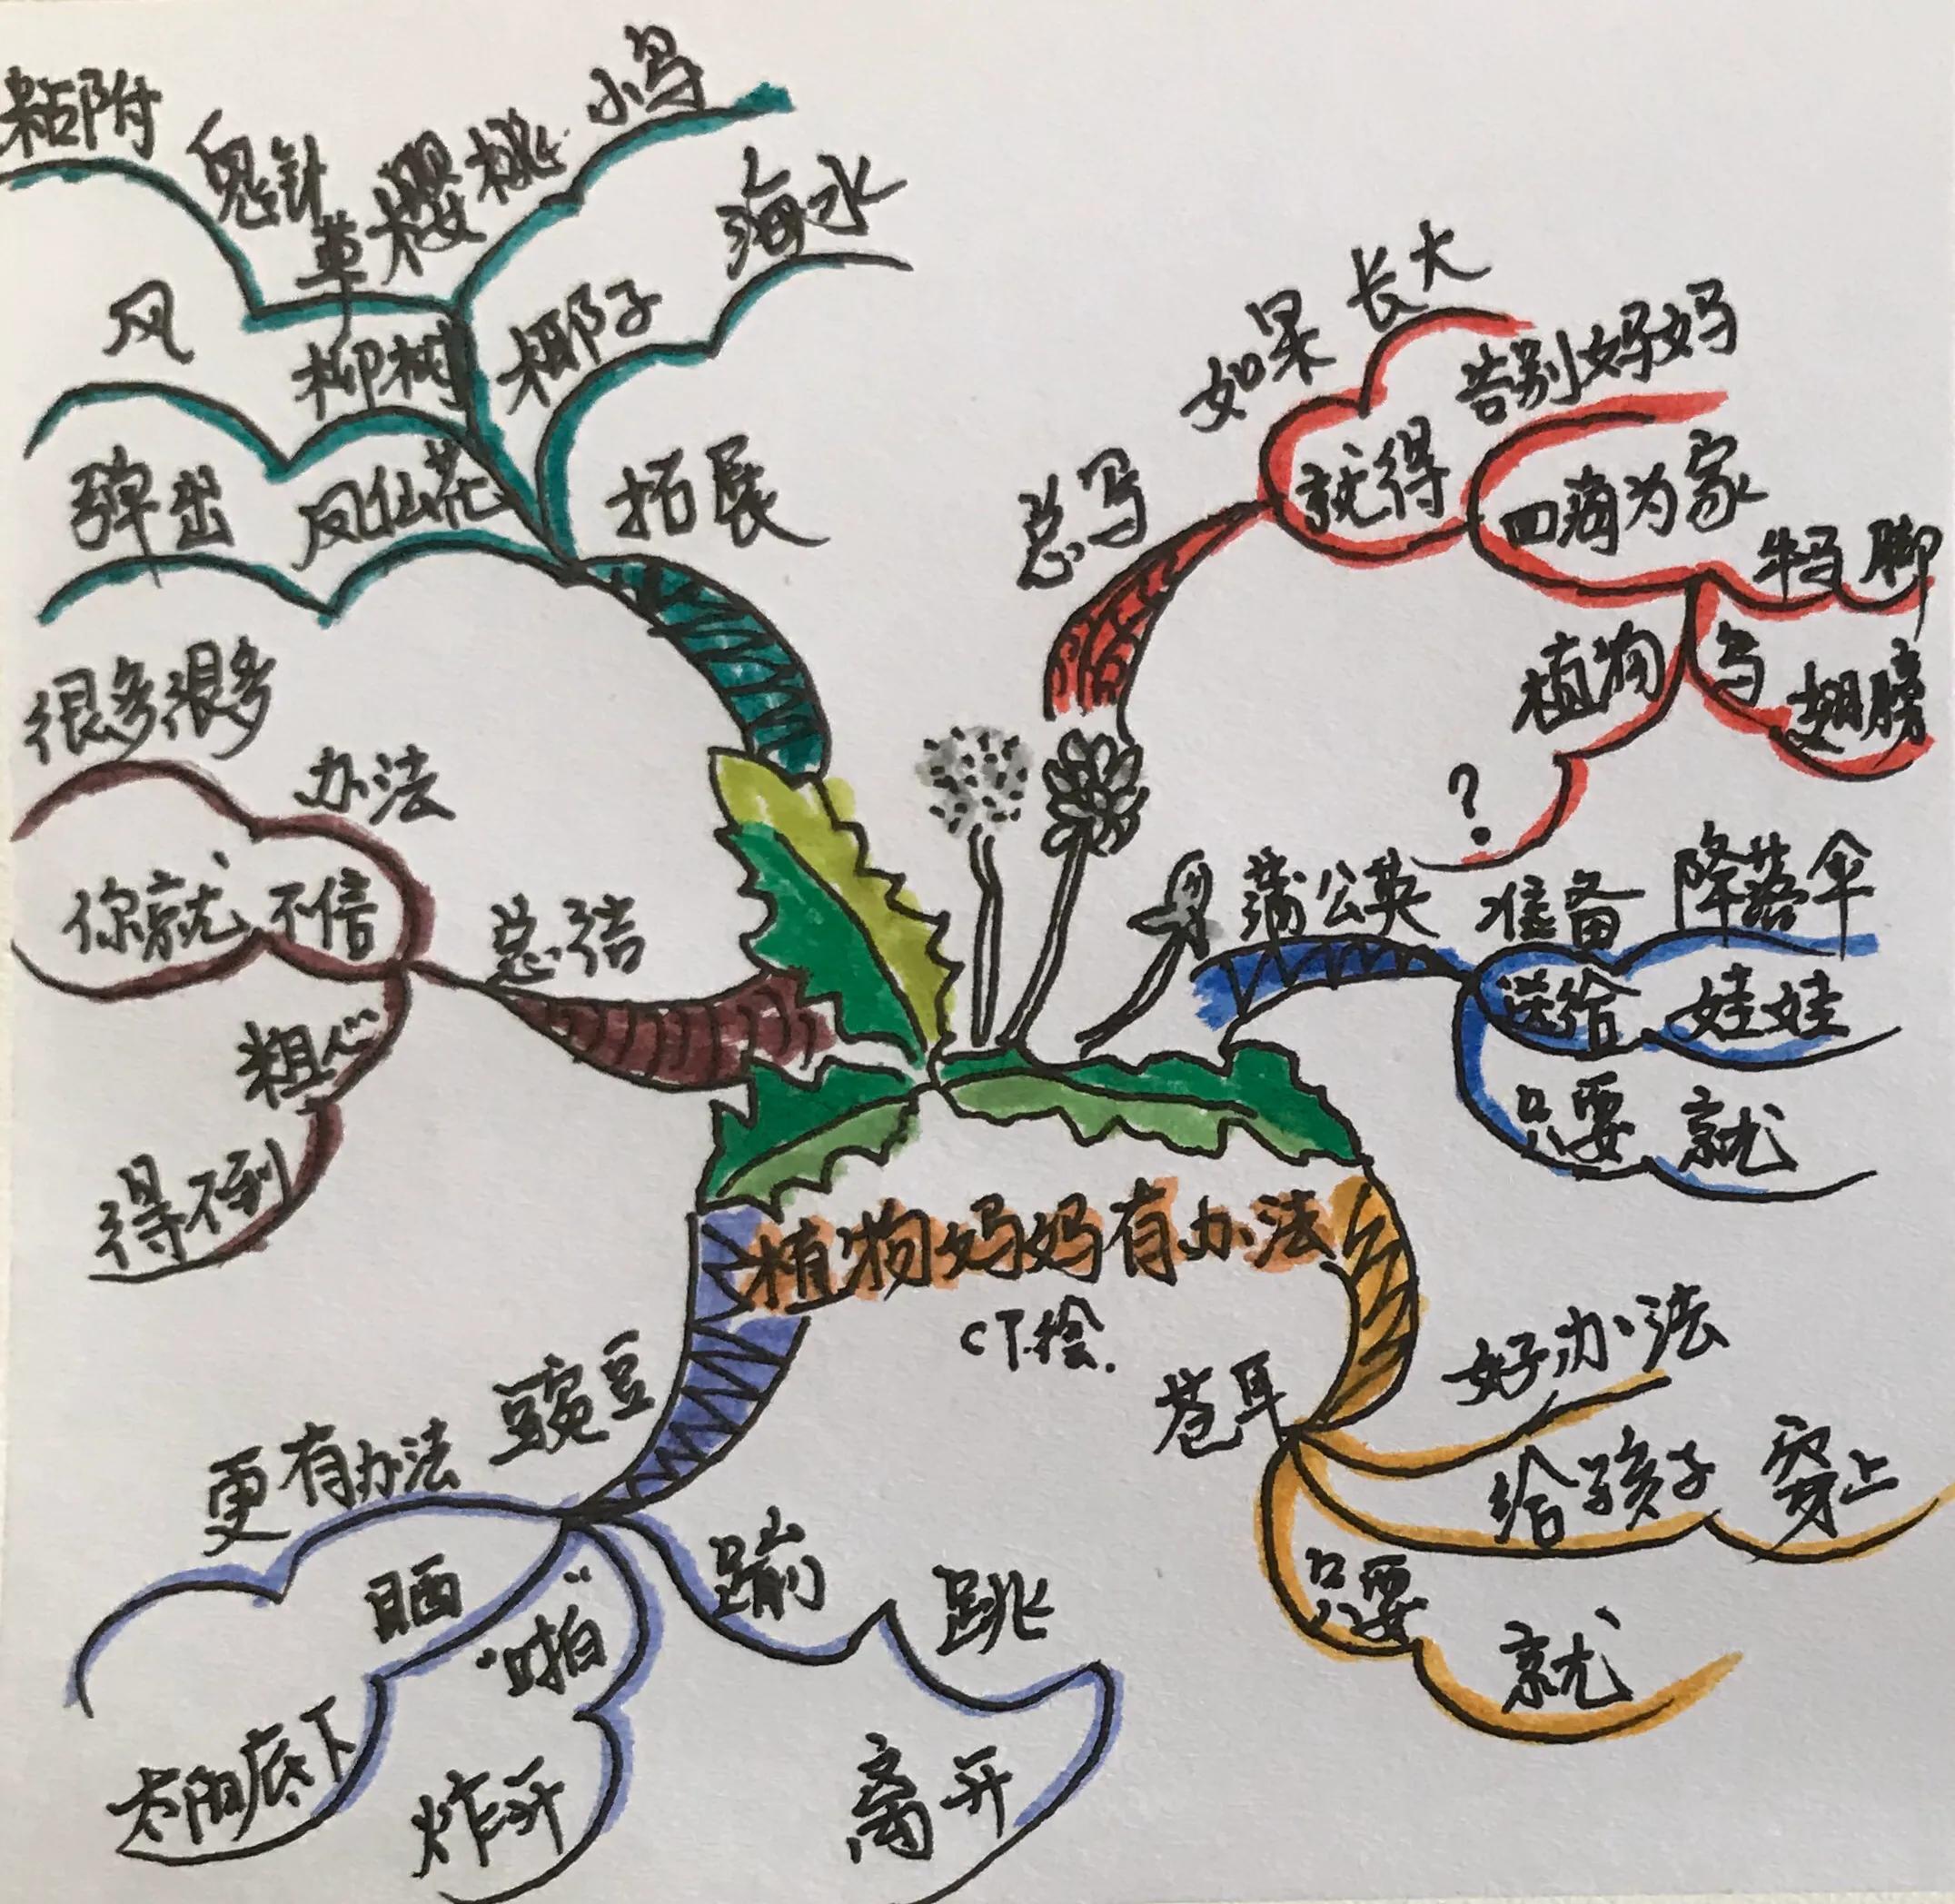 植物妈妈有办法
CT绘.
总写
如果 长大
就得 告别妈妈
四海为家
牛马 脚
鸟 翅膀
植物
?
蒲公英
准备 降落伞
送给 娃娃
只要 就
苍耳
好办法
给孩子 穿上
只要 就
豌豆
更有办法
晒
太阳底下
"啪"
炸开
蹦
跳
离开
总结
办法
很多很多
你就 不信
粗心
得不到
拓展
椰子 海水
樱桃 小鸟
鬼针草
粘附
柳树
风
凤仙花
弹出